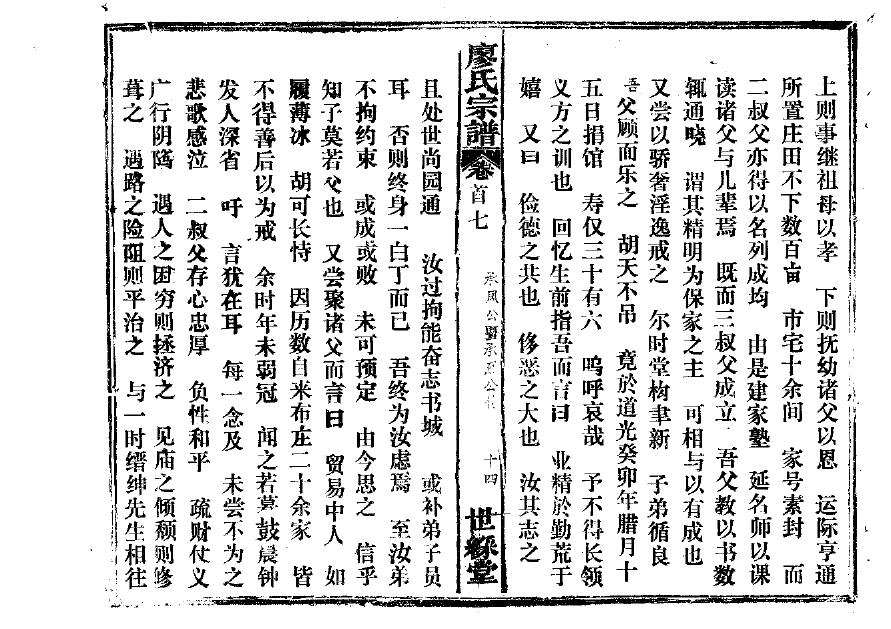 上则事继祖母以孝 下则抚幼诸父以恩 运际亨通
所置庄田不下数百亩 市宅十余间 家号素封 而
二叔父亦得以名列成均 由是建家塾 延名师以课
读诸父与儿辈焉 既而三叔父成立 吾父教以书数
辄通晓 谓其精明为保家之主 可相与以有成也
又尝以骄奢淫逸戒之 尔时堂构聿新 子弟循良
吾父顾而乐之 胡天不吊 竟於道光癸卯年腊月十
五日捐馆 寿仅三十有六 呜呼哀哉 予不得长领
义方之训也 回忆生前指吾而言曰 业精於勤荒于
嬉 又曰 俭德之共也 侈恶之大也 汝其志之
廖氏宗譜 卷首七 承凤公暨承 公 十四 世綵堂
且处世尚园通 汝过拘能奋志书城 或补弟子员
耳 否则终身一白丁而已 吾终为汝虑焉 至汝弟
不拘约束 或成或败 未可预定 由今思之 信乎
知子莫若父也 又尝聚诸父而言曰 贸易中人 如
履薄冰 胡可长恃 因历数自来布庄二十余家 皆
不得善后以为戒 余时年未弱冠 闻之若暮鼓晨钟
发人深省 吁 言犹在耳 每一念及 未尝不为之
悲歌感泣 二叔父存心忠厚 负性和平 疏财仗义
广行阴骘 遇人之困穷则拯济之 见庙之倾颓则修
葺之 遇路之险阻则平治之 与一时缙绅先生相往